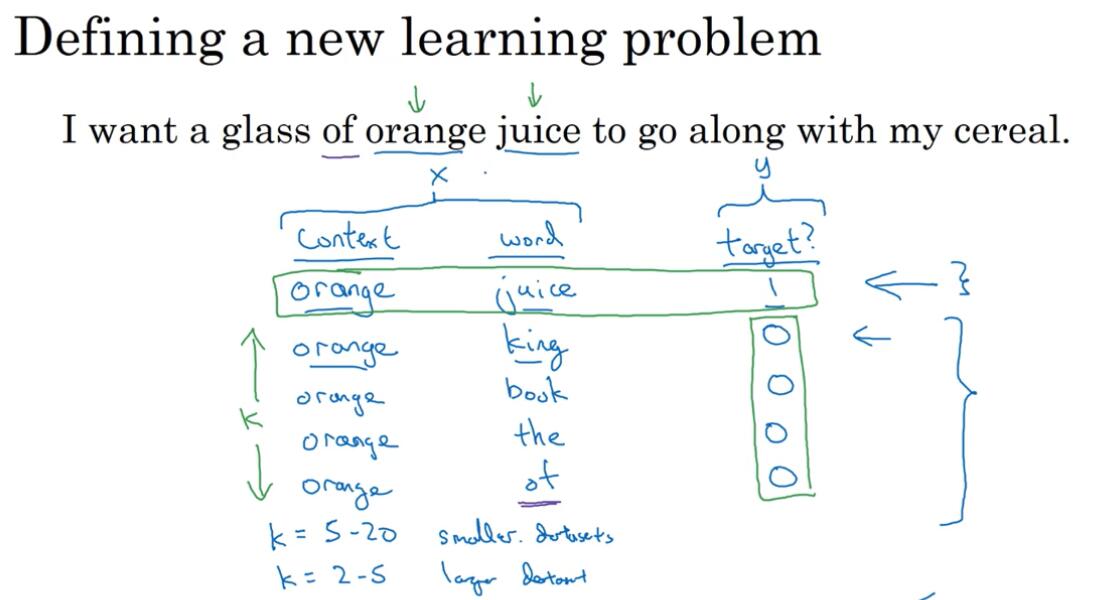 Defining a new learning problem
I want a glass of orange juice to go along with my cereal.
x y
Context word target?
orange juice 1
orange king 0
orange book 0
k
orange the 0
orange of 0
k = 5-20 smaller datasets
k = 2-5 larger dataset